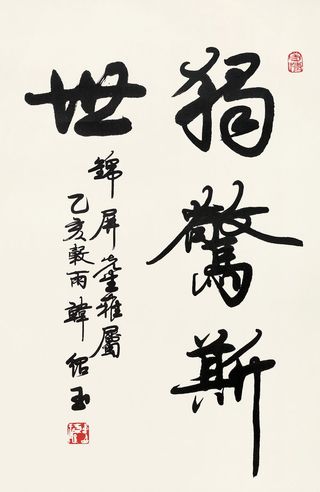 獨驚斯
世
錦屏堂雅屬
乙亥穀雨韓紹玉